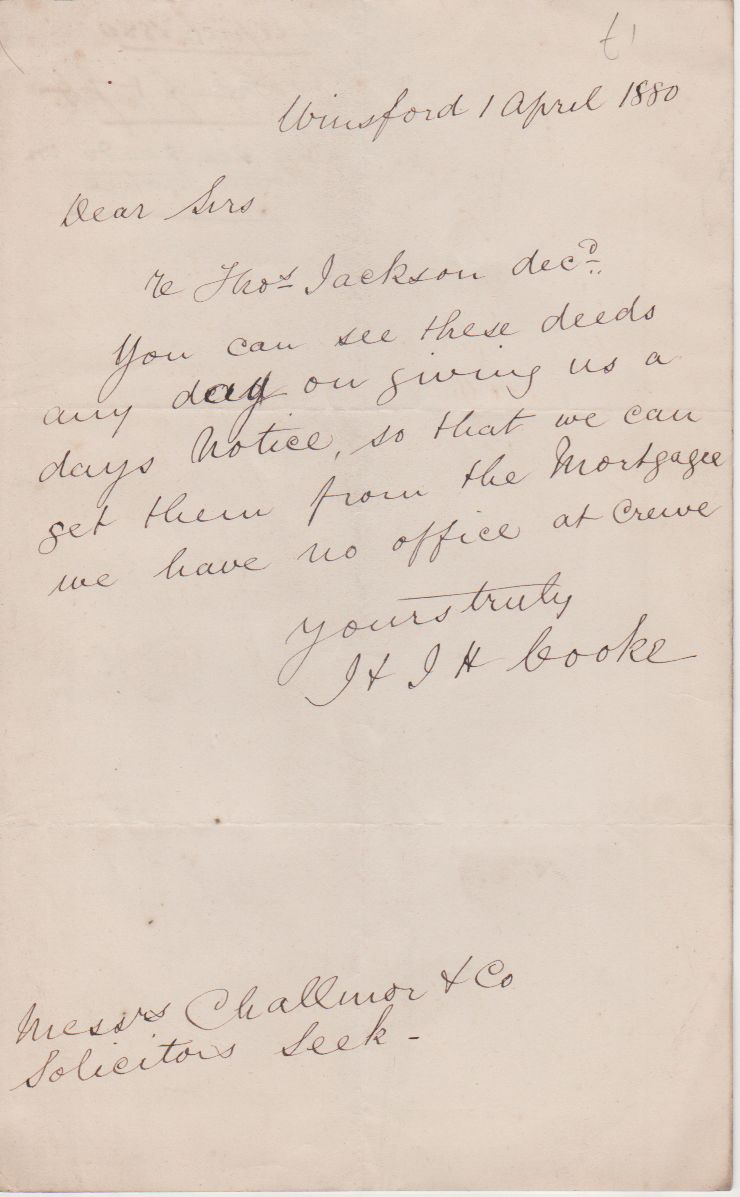 £1
Winsford 1 April 1880
Dear Sirs
re Thos Jackson decd.
You can see these deeds
any day on giving us a
days Notice, so that we can
get them from the Mortgagee
we have no office at Crewe
yours truly
J & J H Cooke
Messrs Challinor & Co
Solicitors Leek -